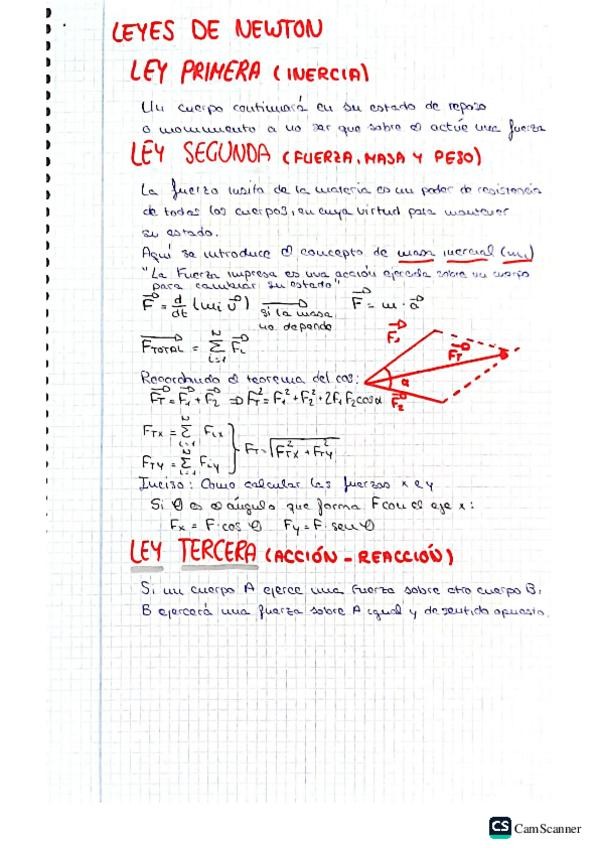 LEYES DE NEWTON
LEY PRIMERA (INERCIA)
Un cuerpo continuará en su estado de reposo
o movimiento a no ser que sobre él actúe una fuerza
LEY SEGUNDA (FUERZA, MASA Y PESO)
La fuerza insita de la materia es un poder de resistencia
de todos los cuerpos, en cuya virtud para mantener
su estado.
Aquí se introduce el concepto de masa inercial (mᵢ)
"La Fuerza impresa es una acción ejercida sobre un cuerpo
para cambiar su estado"
F⃗ = d/dt (mi v⃗) si la masa no depende F⃗ = m · a⃗
F⃗TOTAL = Σ(i=1..N) F⃗i
F⃗₁ F⃗T α F⃗₂
Recordando el teorema del cos:
F⃗T = F⃗₁ + F⃗₂ ⇒ FT² = F₁² + F₂² + 2F₁F₂cosα
FTx = Σ(i=1..N) Fix
FTy = Σ(i=1..N) Fiy } FT = √(FTx² + FTy²)
Inciso: Como calcular las fuerzas x e y
Si θ es el ángulo que forma F con el eje x:
Fx = F · cos θ Fy = F · sen θ
LEY TERCERA (ACCIÓN - REACCIÓN)
Si un cuerpo A ejerce una fuerza sobre otro cuerpo B,
B ejercerá una fuerza sobre A igual y de sentido opuesto.
CS CamScanner